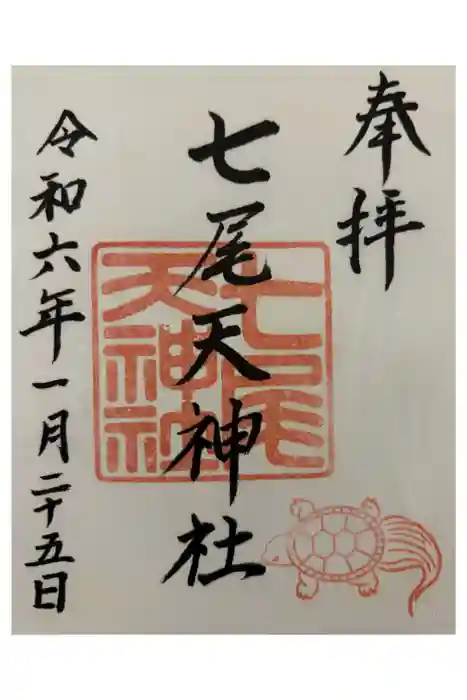 奉拝
七尾天神社
七尾
天神社
令和六年一月二十五日